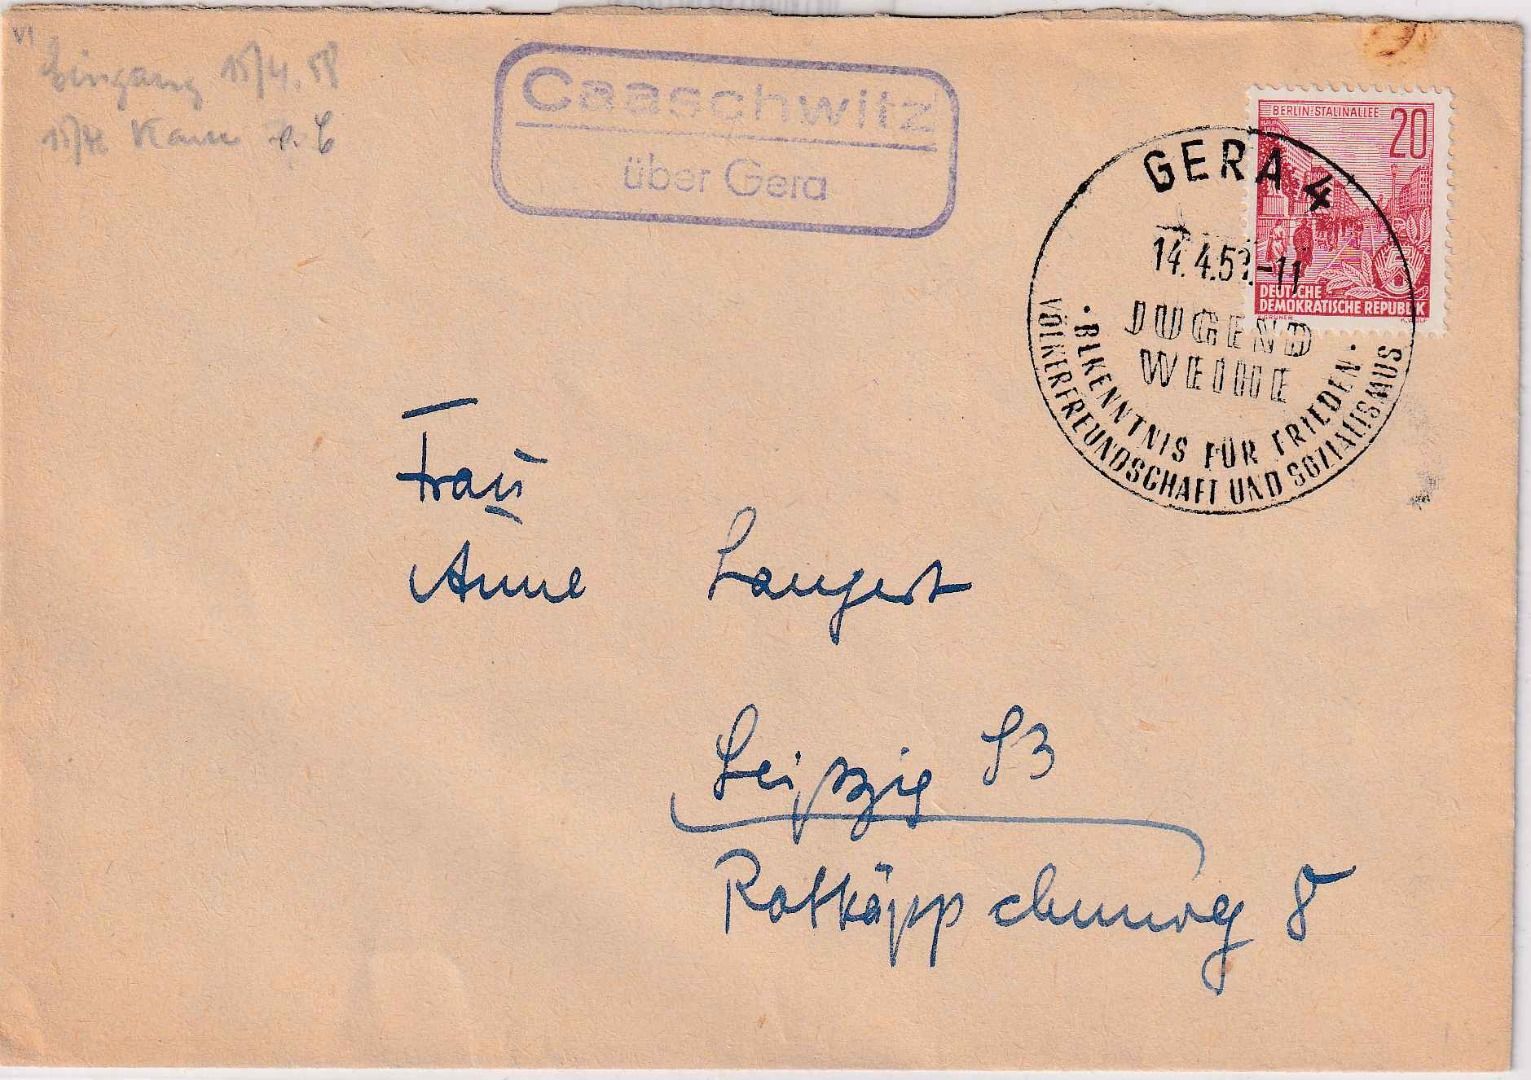 Eingang 15/4. 58
15/4
Caaschwitz
über Gera
BERLIN-STALINALLEE
20
DEUTSCHE
DEMOKRATISCHE REPUBLIK
GERA 4
14.4.58.-11
JUGEND
WEIHE
· BEKENNTNIS FÜR FRIEDEN ·
VÖLKERFREUNDSCHAFT UND SOZIALISMUS
Frau
Anne Langert
Leipzig S3
Rotkäppchenweg 8